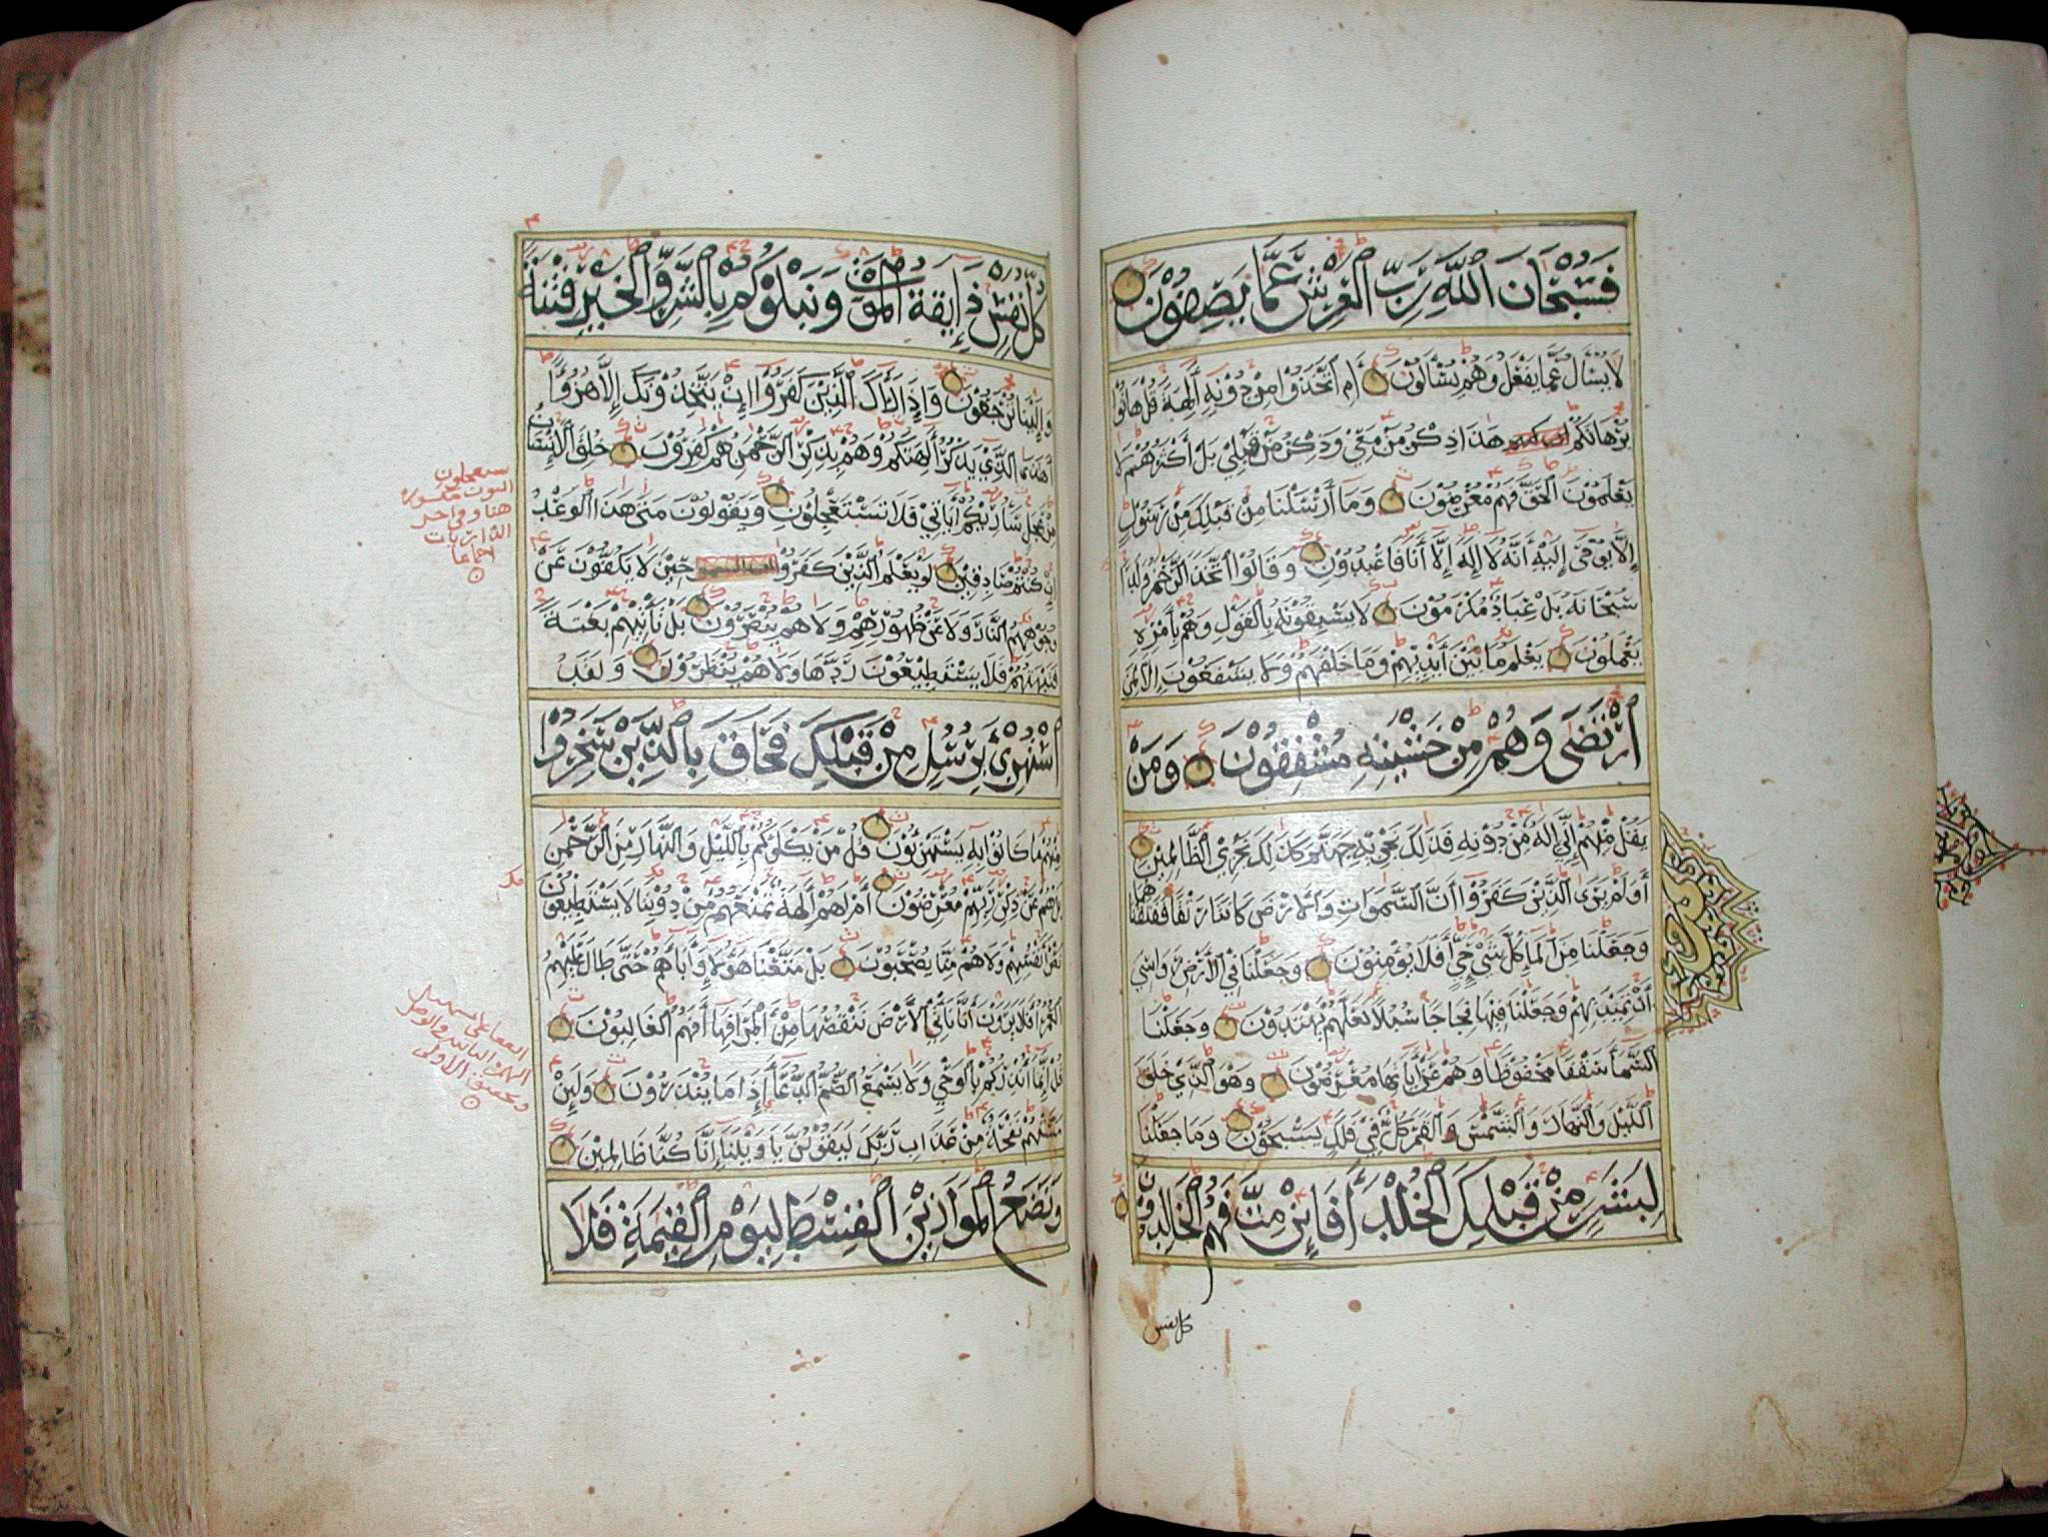 فَسُبْحَانَ اللَّهِ رَبِّ الْعَرْشِ عَمَّا يَصِفُوْنَ
لَا يُسْأَلُ عَمَّا يَفْعَلُ وَهُمْ يُسْأَلُوْنَ أَمِ اتَّخَذُوْا مِنْ دُوْنِهِ آلِهَةً قُلْ هَاتُوْا
بُرْهَانَكُمْ هَذَا ذِكْرُ مَنْ مَعِيَ وَذِكْرُ مَنْ قَبْلِيْ بَلْ أَكْثَرُهُمْ لَا
يَعْلَمُوْنَ الْحَقَّ فَهُمْ مُعْرِضُوْنَ وَمَا أَرْسَلْنَا مِنْ قَبْلِكَ مِنْ رَسُوْلٍ
إِلَّا يُوْحَى إِلَيْهِ أَنَّهُ لَا إِلَهَ إِلَّا أَنَا فَاعْبُدُوْنِ وَقَالُوْا اتَّخَذَ الرَّحْمَنُ وَلَدًا
سُبْحَانَهُ بَلْ عِبَادٌ مُكْرَمُوْنَ لَا يَسْبِقُوْنَهُ بِالْقَوْلِ وَهُمْ بِأَمْرِهِ
يَعْمَلُوْنَ يَعْلَمُ مَا بَيْنَ أَيْدِيْهِمْ وَمَا خَلْفَهُمْ وَلَا يَشْفَعُوْنَ إِلَّا لِمَنِ
ارْتَضَى وَهُمْ مِنْ خَشْيَتِهِ مُشْفِقُوْنَ وَمَنْ
يَقُلْ مِنْهُمْ إِنِّيْ إِلَهٌ مِنْ دُوْنِهِ فَذَلِكَ نَجْزِيْهِ جَهَنَّمَ كَذَلِكَ نَجْزِي الظَّالِمِيْنَ
أَوَلَمْ يَرَى الَّذِيْنَ كَفَرُوْا أَنَّ السَّمَوَاتِ وَالْأَرْضَ كَانَتَا رَتْقًا فَفَتَقْنَاهُمَا
وَجَعَلْنَا مِنَ الْمَاءِ كُلَّ شَيْءٍ حَيٍّ أَفَلَا يُؤْمِنُوْنَ وَجَعَلْنَا فِي الْأَرْضِ رَوَاسِيَ
أَنْ تَمِيْدَ بِهِمْ وَجَعَلْنَا فِيْهَا فِجَاجًا سُبُلًا لَعَلَّهُمْ يَهْتَدُوْنَ وَجَعَلْنَا
السَّمَاءَ سَقْفًا مَحْفُوْظًا وَهُمْ عَنْ آيَاتِهَا مُعْرِضُوْنَ وَهُوَ الَّذِيْ خَلَقَ
اللَّيْلَ وَالنَّهَارَ وَالشَّمْسَ وَالْقَمَرَ كُلٌّ فِيْ فَلَكٍ يَسْبَحُوْنَ وَمَا جَعَلْنَا
لِبَشَرٍ مِنْ قَبْلِكَ الْخُلْدَ أَفَإِنْ مِتَّ فَهُمُ الْخَالِدُوْنَ
كل نفس
كُلُّ نَفْسٍ ذَائِقَةُ الْمَوْتِ وَنَبْلُوْكُمْ بِالشَّرِّ وَالْخَيْرِ فِتْنَةً
وَإِلَيْنَا تُرْجَعُوْنَ وَإِذَا رَآكَ الَّذِيْنَ كَفَرُوْا إِنْ يَتَّخِذُوْنَكَ إِلَّا هُزُؤًا
أَهَذَا الَّذِيْ يَذْكُرُ آلِهَتَكُمْ وَهُمْ بِذِكْرِ الرَّحْمَنِ هُمْ كَفِرُوْنَ خُلِقَ الْإِنْسَانُ
مِنْ عَجَلٍ سَأُرِيْكُمْ آيَاتِيْ فَلَا تَسْتَعْجِلُوْنِ وَيَقُوْلُوْنَ مَتَى هَذَا الْوَعْدُ
إِنْ كُنْتُمْ صَادِقِيْنَ لَوْ يَعْلَمُ الَّذِيْنَ كَفَرُوْا حِيْنَ لَا يَكُفُّوْنَ عَنْ
وُجُوْهِهِمُ النَّارَ وَلَا عَنْ ظُهُوْرِهِمْ وَلَا هُمْ يُنْصَرُوْنَ بَلْ تَأْتِيْهِمْ بَغْتَةً
فَتَبْهَتُهُمْ فَلَا يَسْتَطِيْعُوْنَ رَدَّهَا وَلَا هُمْ يُنْظَرُوْنَ وَلَقَدِ
اسْتُهْزِئَ بِرُسُلٍ مِنْ قَبْلِكَ فَحَاقَ بِالَّذِيْنَ سَخِرُوْا
مِنْهُمْ مَا كَانُوْا بِهِ يَسْتَهْزِئُوْنَ قُلْ مَنْ يَكْلَؤُكُمْ بِاللَّيْلِ وَالنَّهَارِ مِنَ الرَّحْمَنِ
بَلْ هُمْ عَنْ ذِكْرِ رَبِّهِمْ مُعْرِضُوْنَ أَمْ لَهُمْ آلِهَةٌ تَمْنَعُهُمْ مِنْ دُوْنِنَا لَا يَسْتَطِيْعُوْنَ
نَصْرَ أَنْفُسِهِمْ وَلَا هُمْ مِنَّا يُصْحَبُوْنَ بَلْ مَتَّعْنَا هَؤُلَاءِ وَآبَاءَهُمْ حَتَّى طَالَ عَلَيْهِمُ
الْعُمُرُ أَفَلَا يَرَوْنَ أَنَّا نَأْتِي الْأَرْضَ نَنْقُصُهَا مِنْ أَطْرَافِهَا أَفَهُمُ الْغَالِبُوْنَ
قُلْ إِنَّمَا أُنْذِرُكُمْ بِالْوَحْيِ وَلَا يَسْمَعُ الصُّمُّ الدُّعَاءَ إِذَا مَا يُنْذَرُوْنَ وَلَئِنْ
مَسَّتْهُمْ نَفْحَةٌ مِنْ عَذَابِ رَبِّكَ لَيَقُوْلُنَّ يَا وَيْلَنَا إِنَّا كُنَّا ظَالِمِيْنَ
وَنَضَعُ الْمَوَازِيْنَ الْقِسْطَ لِيَوْمِ الْقِيَمَةِ فَلَا
النون مكسورة
هنا وفي آخر
الذاريات